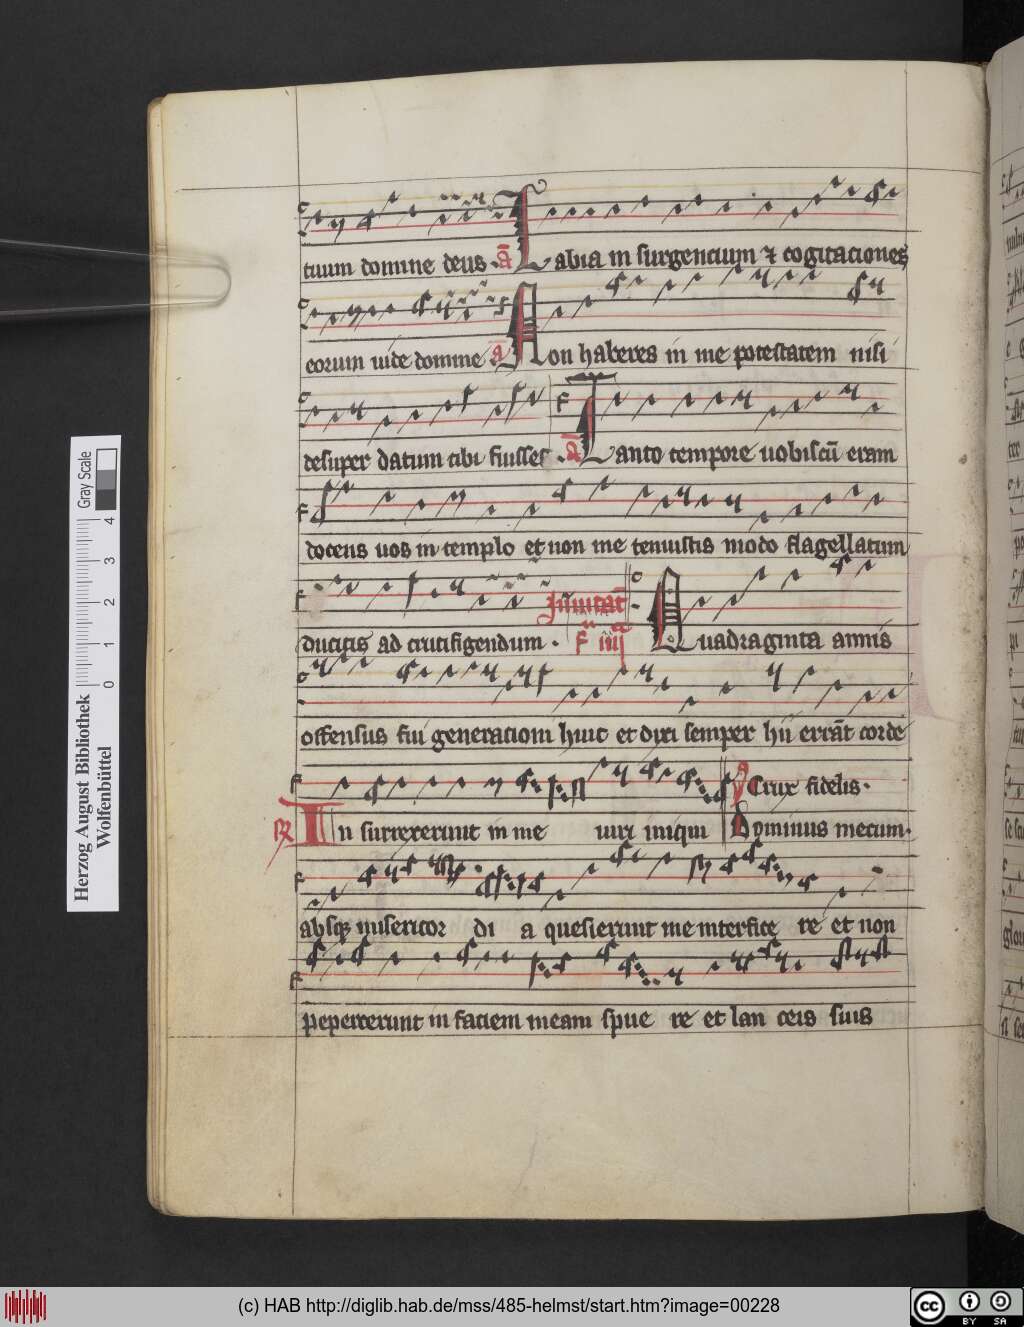 tuum domine deus · a Labia in surgencium ⁊ cogitaciones
eorum uide domine a Non haberes in me potestatem nisi
desuper datum tibi fuisset · a Tanto tempore uobiscū eram
docens uos in templo et non me tenuistis modo flagellatum
ducitis ad crucifigendum · Inuitat̄ F iiij Quadraginta annis
offensus fui generationi huic et dixi semper hii errāt corde
V Crux fidelis ·
R In surrexerunt in me uiri iniqui Dominus mecum ·
absqȝ misericor di a quesierunt me interfice re et non
pepercerunt in faciem meam spue re et lan ceis suis
Herzog August Bibliothek
Wolfenbüttel
Gray Scale
0 1 2 3 4
(c) HAB http://diglib.hab.de/mss/485-helmst/start.htm?image=00228
cc BY SA